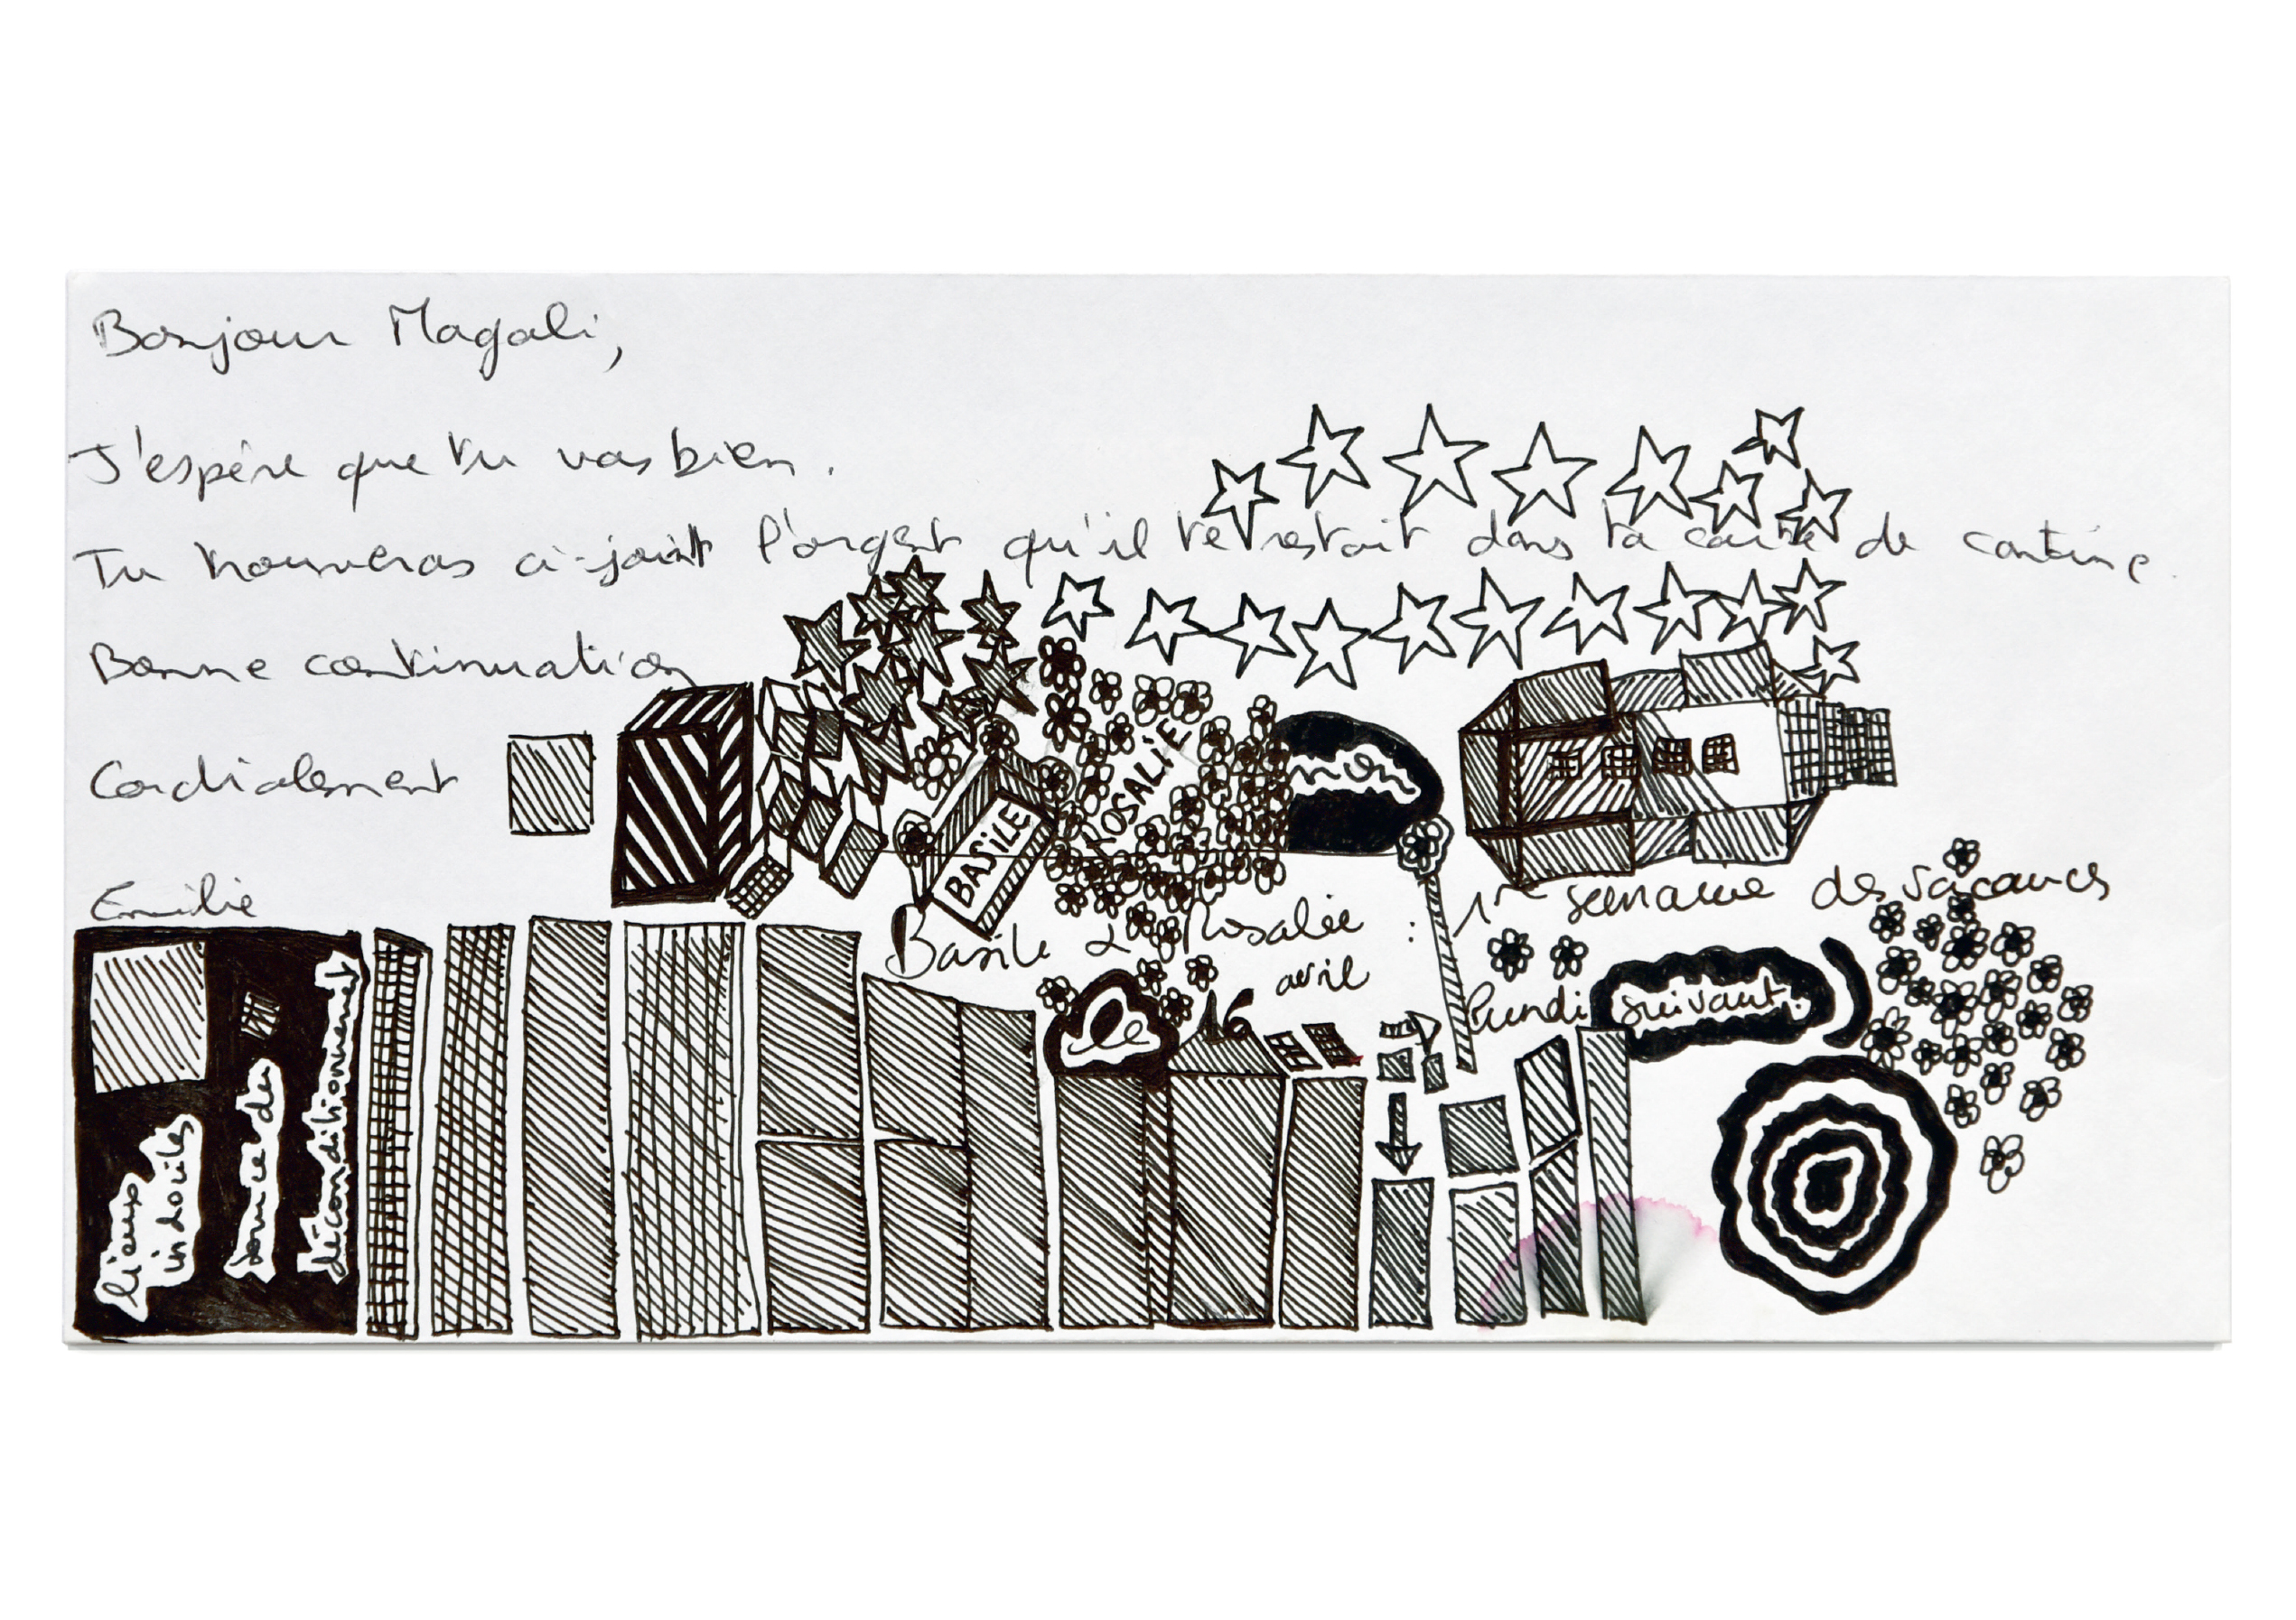 Bonjour Magali,
J'espère que tu vas bien.
Tu trouveras ci-joint l'argent qu'il te restait dans ta carte de cantine.
Bonne continuation
Cordialement
Emilie
BASILE
ROSALIE
non
Basile & Rosalie : 1re semaine des vacances
le 16 avril
lundi suivant.
lieux
indociles
source de
déconditionnement